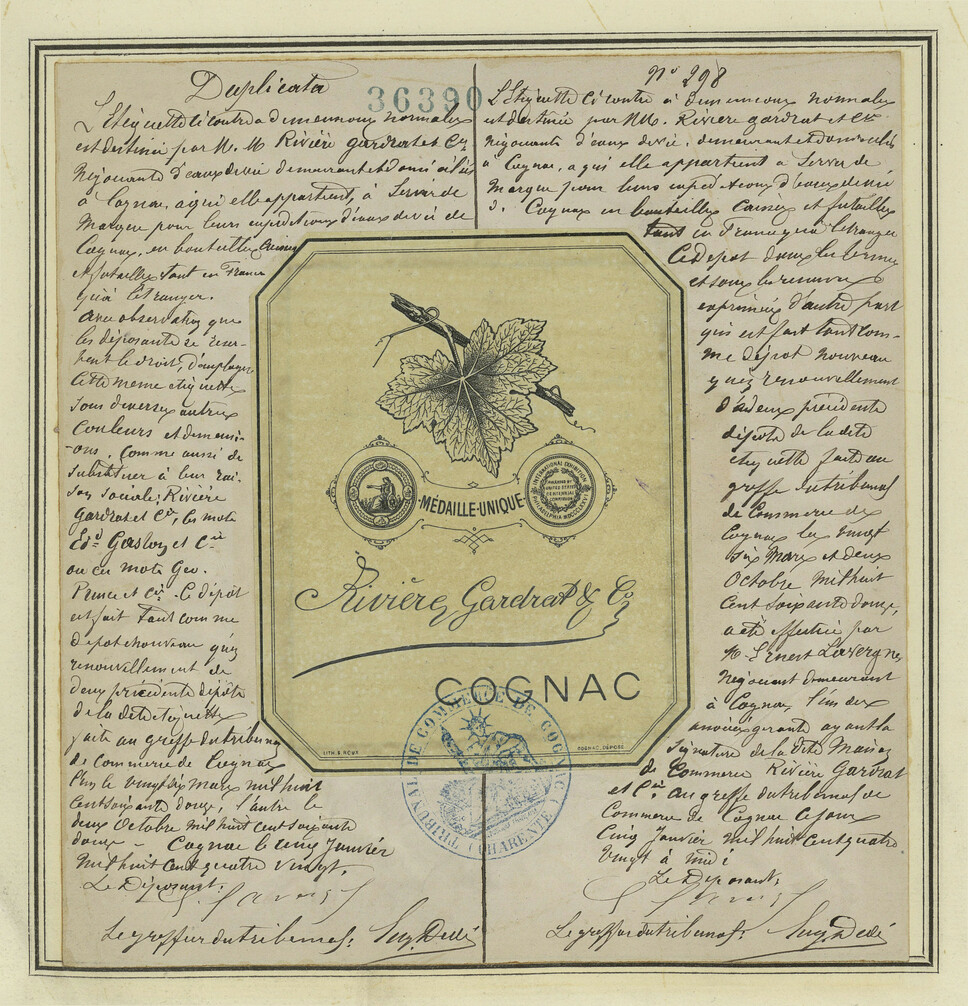 Duplicata
36390
L'Etiquette ci contre a dimensions normales
est destinée par M. M Rivière Gardrat et Cie
Négociants d'eaux de vie demeurant et domiciliés
à Cognac, à qui elle appartient, à Servir de
Marque pour leurs expéditions d'eaux de vie de
Cognac, en bouteilles Caisses
et futailles tant en France
qu'à l'étranger.
Avec observation que
les déposants se reser-
vent le droit, d'employer
Cette meme etiquette
sous diverses autres
Couleurs et dimensi-
-ons, Comme aussi de
substituer à leur rai-
son sociale, Rivière
Gardrat et Cie, les mots
Edd Gaston et Cie
ou ces mots Geo.
Prince et Cie. Ce dépôt
est fait tant comme
dépot nouveau qu'en
renouvellement de
deux précédents dépôts
de la dite etiquette
faits au greffe du tribunal
de Commerce de Cognac
l'un le vingt six Mars mil huit
cent soixante douze, l'autre le
deux Octobre mil huit cent soixante
douze - Cognac le cinq Janvier
mil huit cent quatre vingt.
Le Déposant:
Le greffier du tribunal: Eug. Dedé
No 298
L'Etiquette ci contre à dimensions normales
est destinée par MM. Rivière Gardrat et Cie
Négociants d'eaux de vie, demeurant et domiciliés
à Cognac, à qui elle appartient à Servir de
Marque pour leurs expéditions d'eaux de vie
de Cognac en bouteilles Caisses et futailles
tant en France qu'à l'étranger
Ce dépot dans les termes
et sous les reserves
exprimées d'autre part
qui est fait tant com-
me dépot nouveau
qu'en renouvellement
d'a deux précédents
dépôts de la dite
etiquette faits au
greffe du tribunal
de Commerce de
Cognac les vingt
six Mars et deux
Octobre mil huit
cent soixante douze,
a été effectué par
M. Ernest Lavergne
Négociant demeurant
à Cognac, l'un des
associés gérants ayant la
signature de la dite Maison
de Commerce Rivière Gardrat
et Cie. au greffe du tribunal de
Commerce de Cognac ce jour
Cinq Janvier mil huit cent quatre
vingt à midi
Le Déposant:
Le greffier du tribunal: Eug. Dedé
INTERNATIONAL EXHIBITION
PHILADELPHIA MDCCCLXXVI
AWARDED BY
UNITED STATES
CENTENNIAL
COMMISSION
MÉDAILLE-UNIQUE
Rivière, Gardrat & Co
COGNAC
LITH. E. ROUX
COGNAC, DÉPOSÉ
TRIBUNAL DE COMMERCE DE COGNAC (CHARENTE)